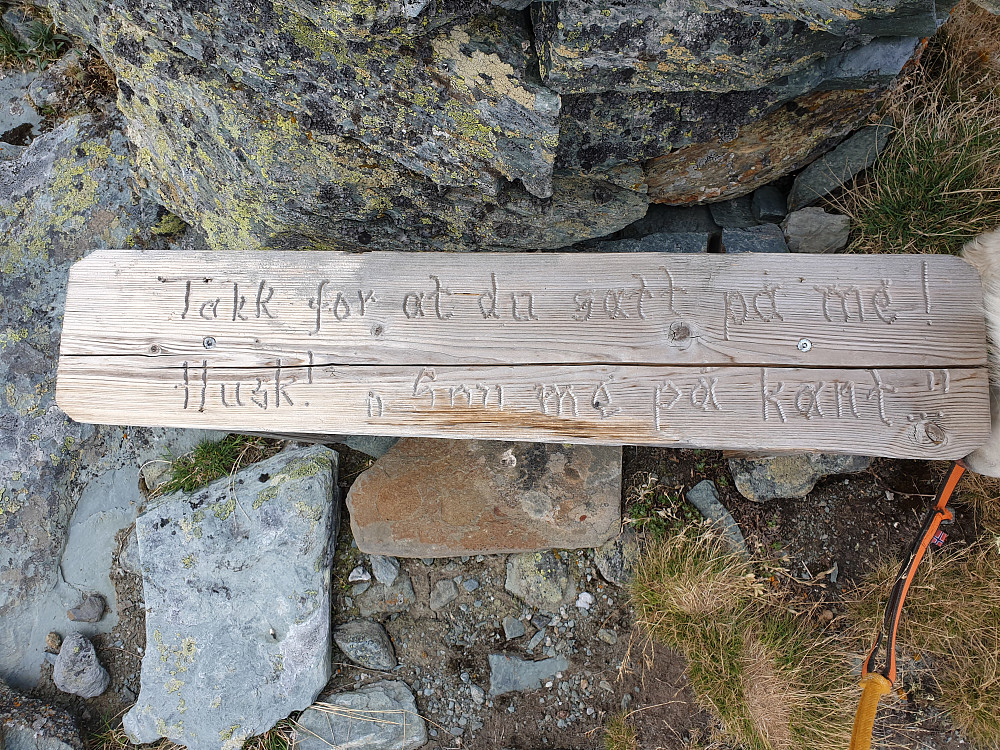 Takk for at du satt på mé!
Husk! „Snu mé på kant."